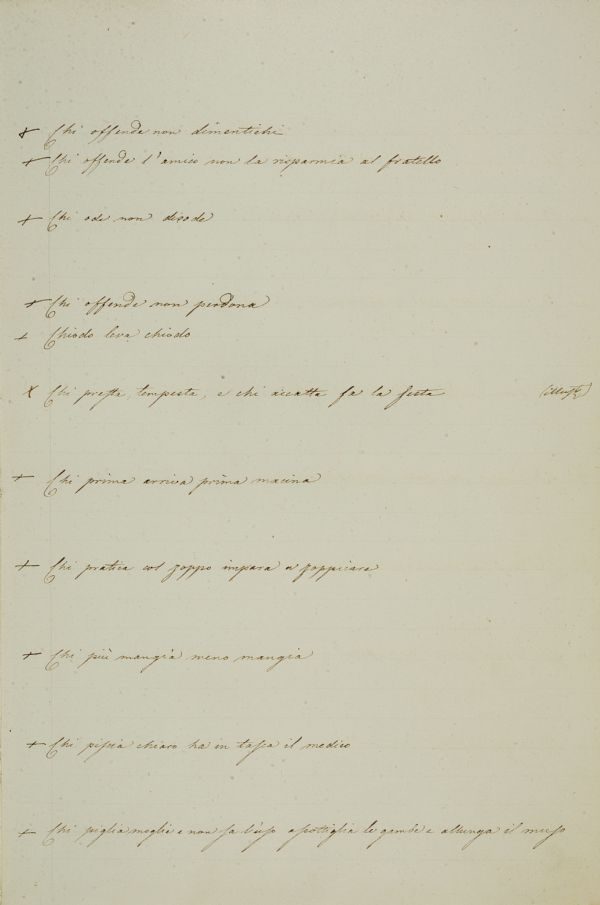 + Chi offende non dimentichi
+ Chi offende l'amico non la risparmia al fratello
+ Chi ode non disode
+ Chi offende non perdona
+ Chiodo leva chiodo
X Chi presta, tempesta, e chi accatta fa la festa
+ Chi prima arriva prima macina
+ Chi pratica col zoppo impara a zoppicare
+ Chi più mangia meno mangia
+ Chi piscia chiaro ha in tasca il medico
+ Chi piglia moglie e non sa l'uso assottiglia le gambe e allunga il muso